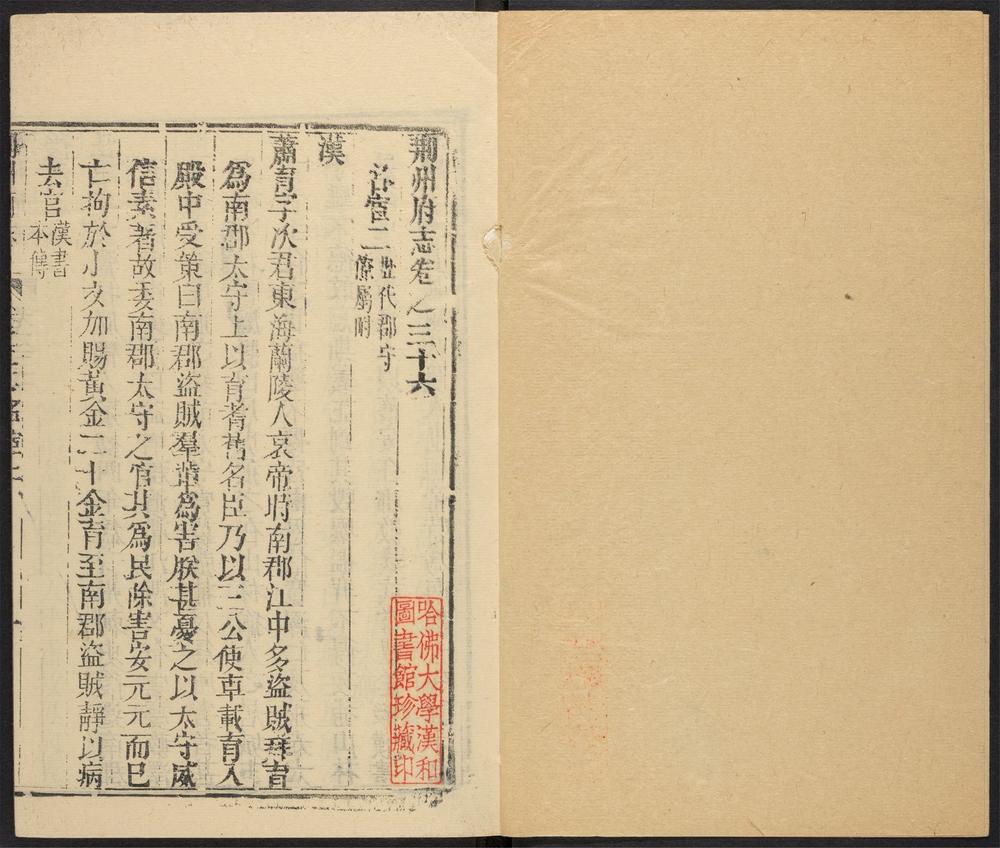 荊州府志卷之三十六
名宦二
歷代郡守
僚屬附
漢
蕭育字次君東海蘭陵人哀帝時南郡江中多盜賊拜育
為南郡太守上以育耆舊名臣乃以三公使車載育入
殿中受策曰南郡盜賊羣輩為害朕甚憂之以太守威
信素著故委南郡太守之官其為民除害安元元而已
亡拘於小文加賜黃金二十金育至南郡盜賊靜以病
去官
漢書
本傳
哈佛大學漢和
圖書館珍藏印